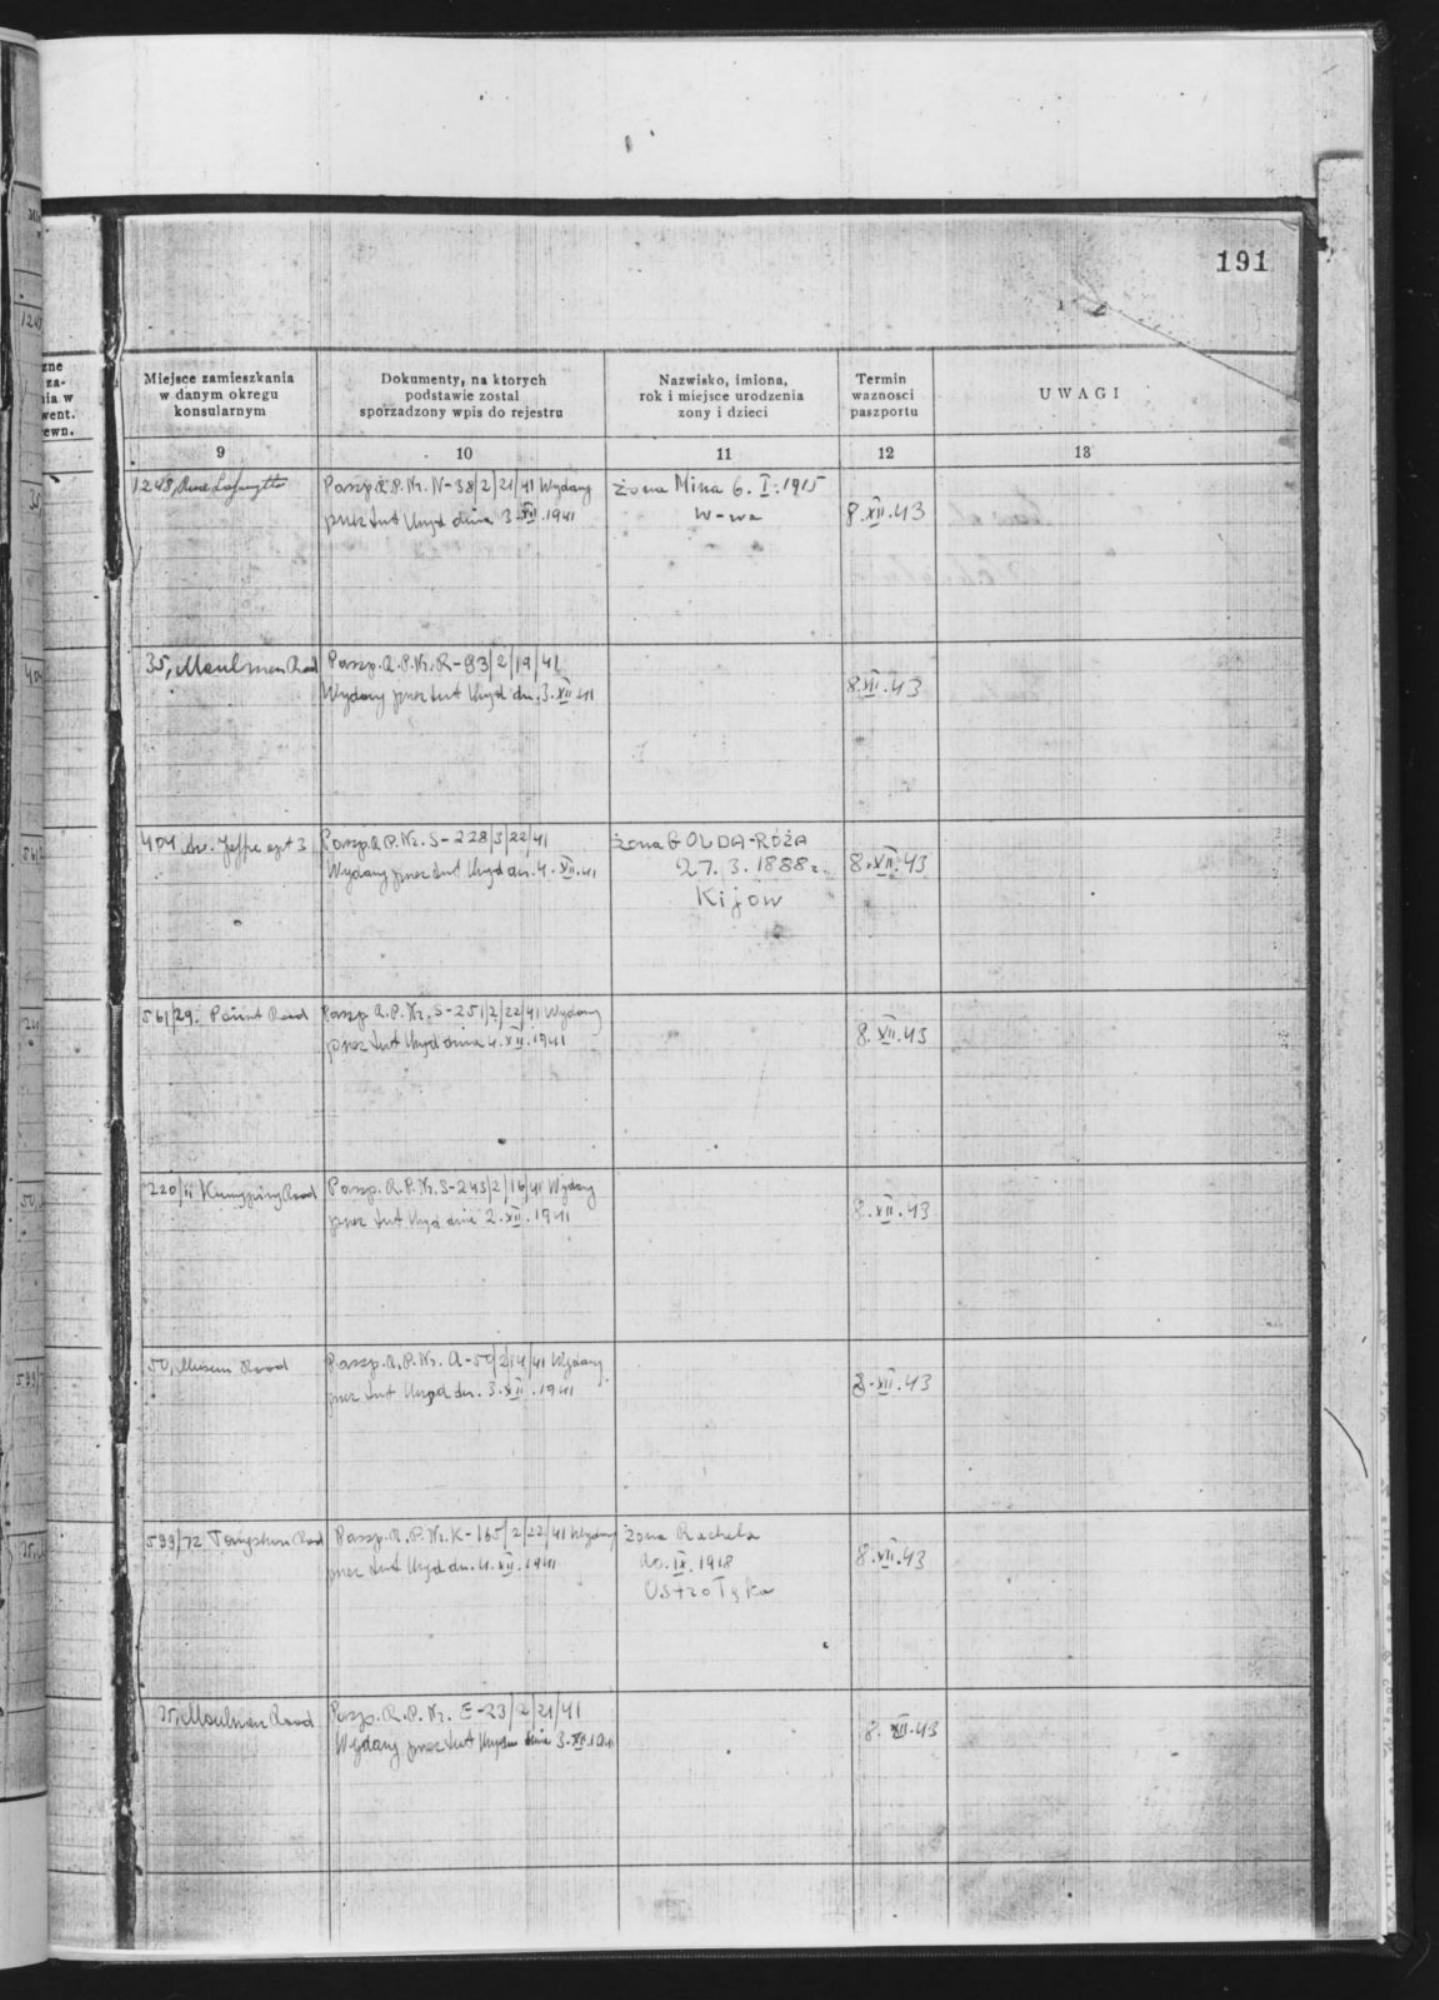 191
zne
za-
nia w
went.
ewn.
Miejsce zamieszkania
w danym okregu
konsularnym
Dokumenty, na ktorych
podstawie zostal
sporzadzony wpis do rejestru
Nazwisko, imiona,
rok i miejsce urodzenia
zony i dzieci
Termin
waznosci
paszportu
UWAGI
9
10
11
12
13
1248, Rue Lafayette
Paszp. R.P. Nr. N-38/2/21/41 Wydany
przez tut Urząd dnia 3.XII.1941
żona Mina 6. I. 1915
W-wa
8.XII.43
35, Moulmen Road
Paszp. R.P. Nr. R-93/2/19/41
Wydany przez tut Urząd dn. 3.XII.41
8.XII.43
404 Av. Joffre apt 3
Paszp R.P. Nr. S-228/3/22/41
Wydany przez tut Urząd dn. 4.XII.41
żona GOLDA-RÓŻA
27. 3. 1888 r.
Kijow
8.XII.43
561/29. Point Road
Paszp R.P. Nr. S-251/2/22/41 Wydany
przez tut Urząd dnia 4.XII.1941
8.XII.43
220/11 Kungping Road
Paszp. R.P. Nr. S-243/2/16/41 Wydany
przez tut Urząd dnia 2.XII.1941
8.XII.43
50, Museum Road
Paszp. R.P. Nr. A-50/2/4/41 Wydany
przez tut Urząd dn. 3.XII.1941
8.XII.43
599/72 Tongshan Road
Paszp. R.P. Nr. K-165/2/22/41 Wydany
przez tut Urząd dn. 4.XII.1941
żona Rachela
IX. 1918
Ostrołęka
8.XII.43
35, Moulmen Road
Paszp. R.P. Nr. E-23/2/21/41
Wydany przez tut Urząd dnia 3.XII.1941
8. XII.43